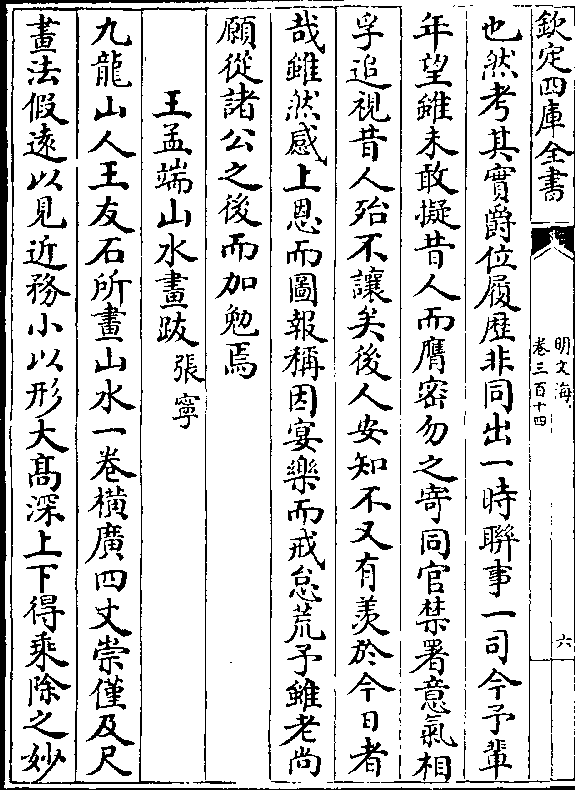 欽定四庫全書
明文海
卷三百十四
六
也然考其實爵位履歴非同出一時聯事一司今予輩
年望雖未敢擬昔人而膺密勿之寄同官禁署意氣相
孚追視昔人殆不讓矣後人安知不又有羡於今日者
哉雖然感上恩而圖報稱因宴樂而戒怠荒予雖老尚
願從諸公之後而加勉焉
王孟端山水畫跋張寧
九龍山人王友石所畫山水一卷横廣四丈崇僅及尺
畫法假逺以見近務小以形大髙深上下得乘除之妙